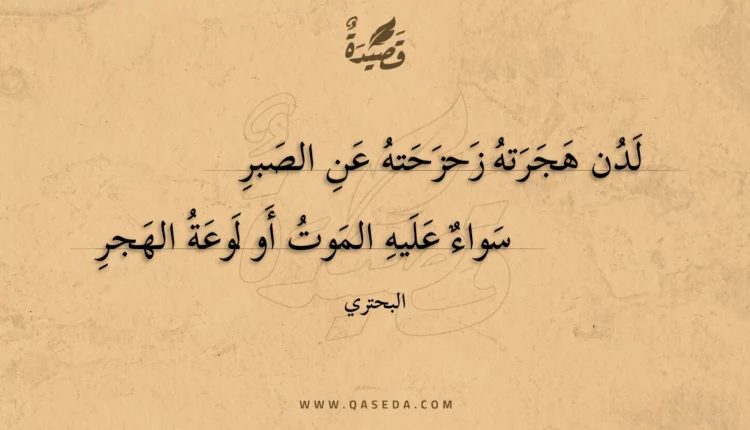 قَصِيدَةٌ
لَدُن هَجَرَتهُ زَحزَحَتهُ عَنِ الصَبرِ
سَواءٌ عَلَيهِ المَوتُ أَو لَوعَةُ الهَجرِ
البحتري
WWW.QASEDA.COM